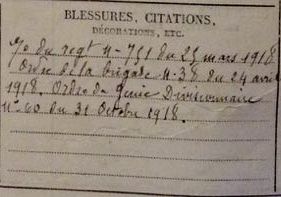 BLESSURES, CITATIONS,
DÉCORATIONS, ETC.
du regt N-751 du 25 mars 1918
Ordre de la brigade N-38 du 24 avril
1918. Ordre du Génie Divisionnaire
N-60 du 31 Octobre 1918.